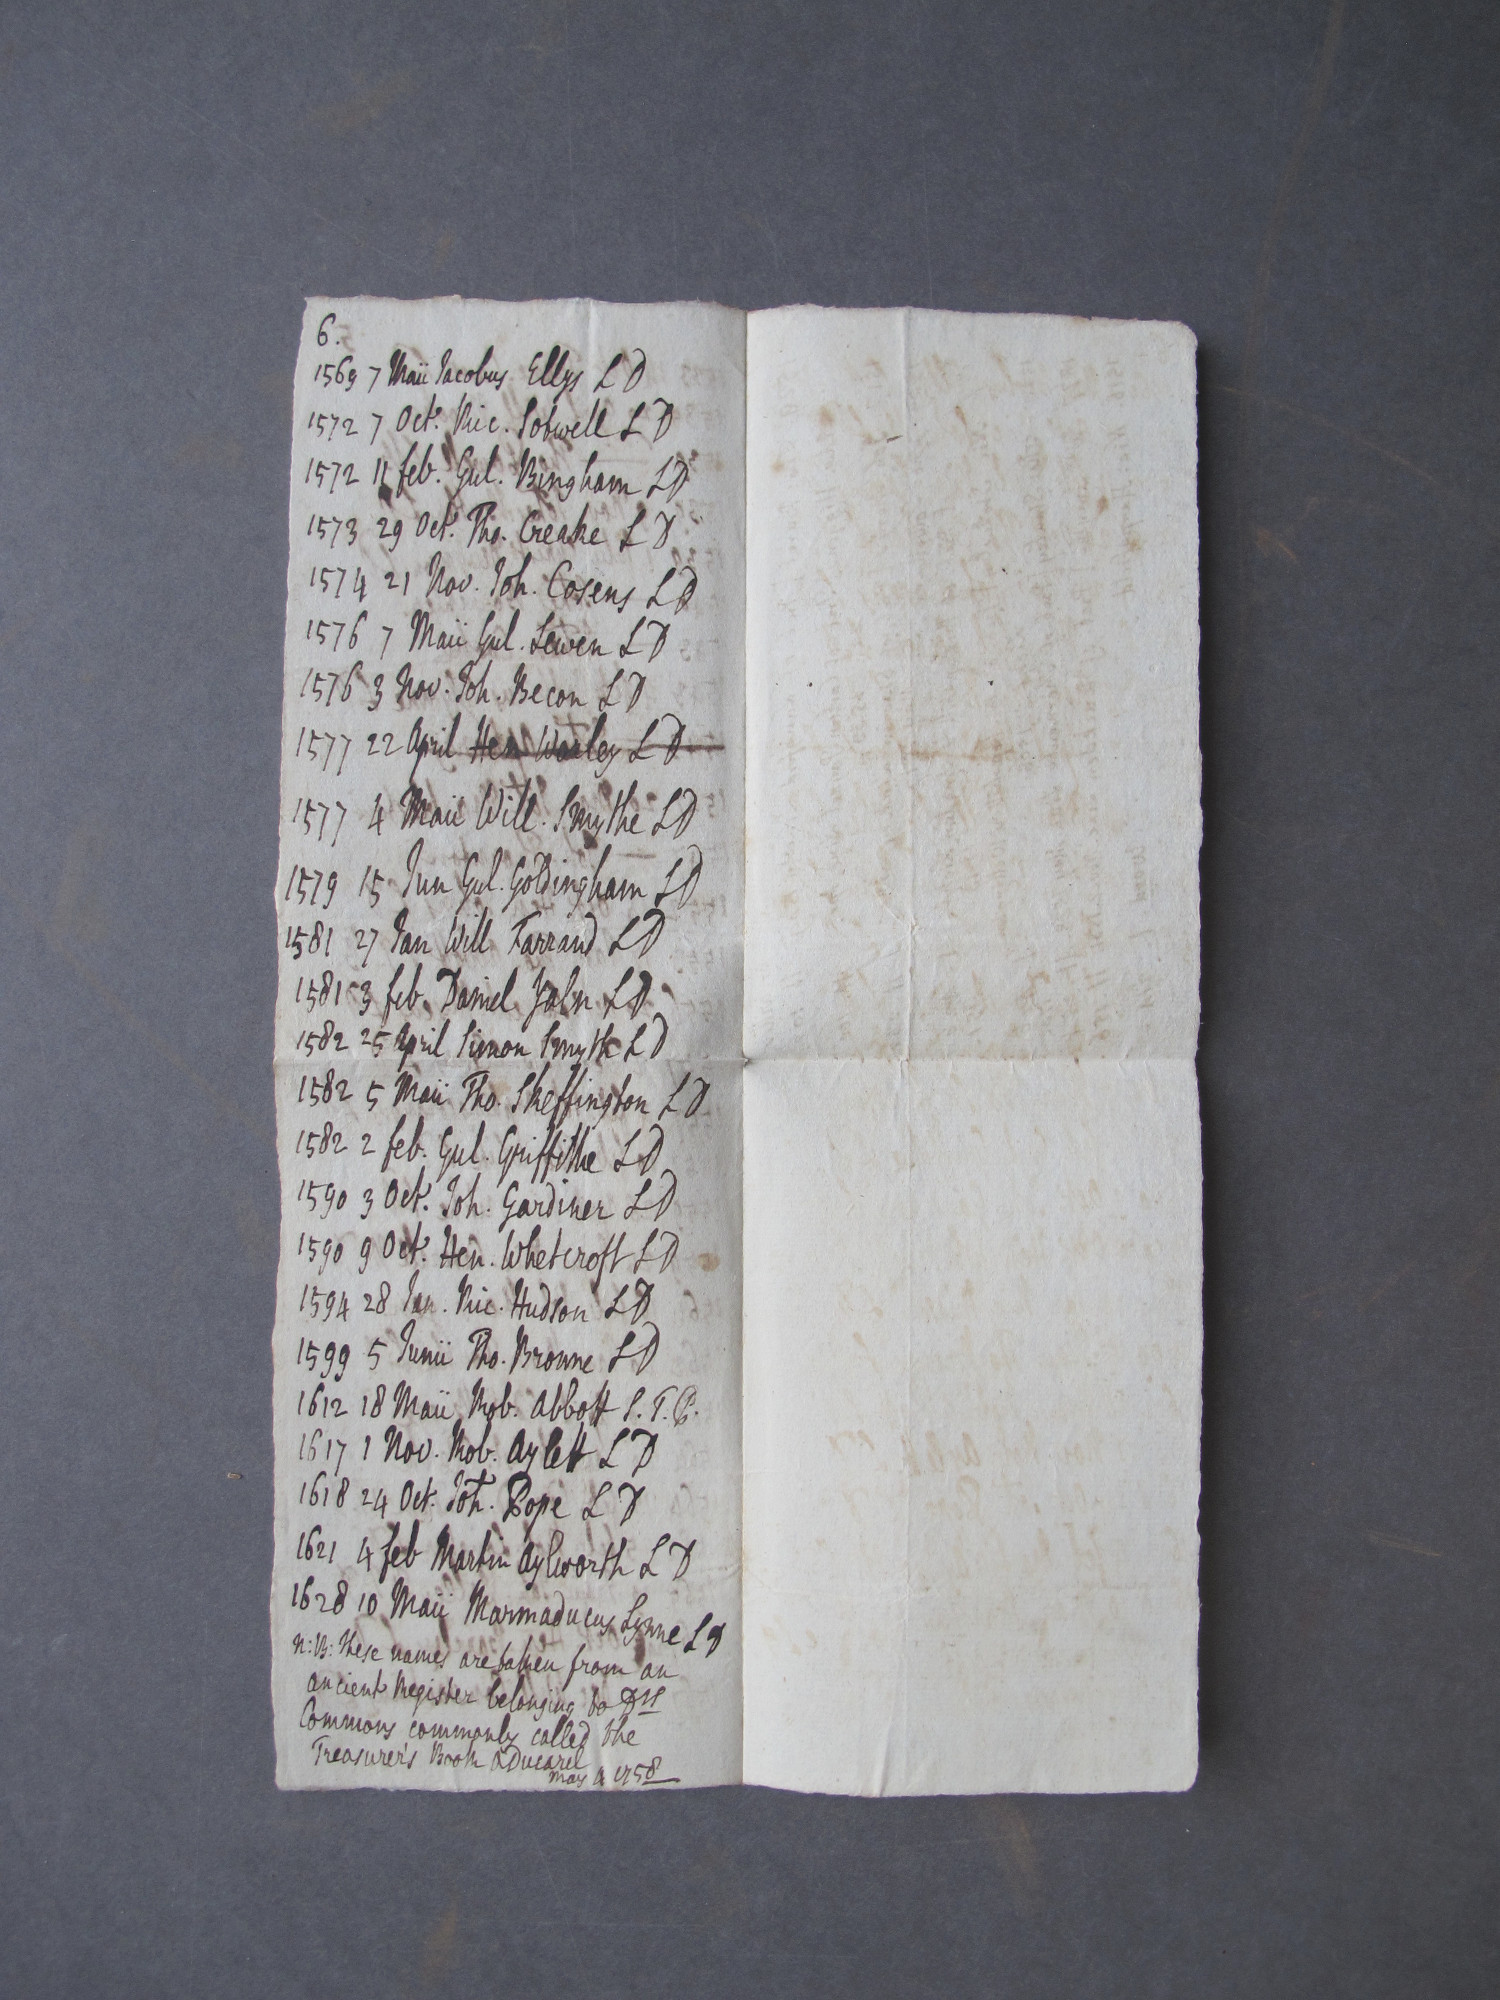 6.
1569 7 Maii Jacobus Ellys L D
1572 7 Oct. Ric. Sotwell L D
1572 11 feb. Gul. Bingham L D
1573 29 Oct. Tho. Creake L D
1574 21 Nov. Joh. Cosens L D
1576 7 Maii Gul. Lewen L D
1576 3 Nov. Joh. Becon L D
1577 22 April Hen Worley L D
1577 4 Maii Will. Smythe L D
1579 15 Jun Gul. Goldingham L D
1581 27 Jan Will Farrand L D
1581 3 feb. Daniel L D
1582 25 April Simon Smyth L D
1582 5 Maii Tho. Skeffington L D
1582 2 feb. Gul. Griffithe L D
1590 3 Oct. Joh. Gardiner L D
1590 9 Oct. Hen. Whetcroft L D
1594 28 Jan. Ric. Hudson L D
1599 5 Junii Tho. Browne L D
1612 18 Maii Rob. Abbott S. T. P.
1617 1 Nov. Rob. Aylett L D
1618 24 Oct. Joh. Pope L D
1621 4 feb Martin Aylworth L D
1628 10 Maii Marmaducus Lynne L D
N:B: These names are taken from an
ancient Register belonging to Drs
Commons commonly called the
Treasurer's Book ADucarel
May 4 1758